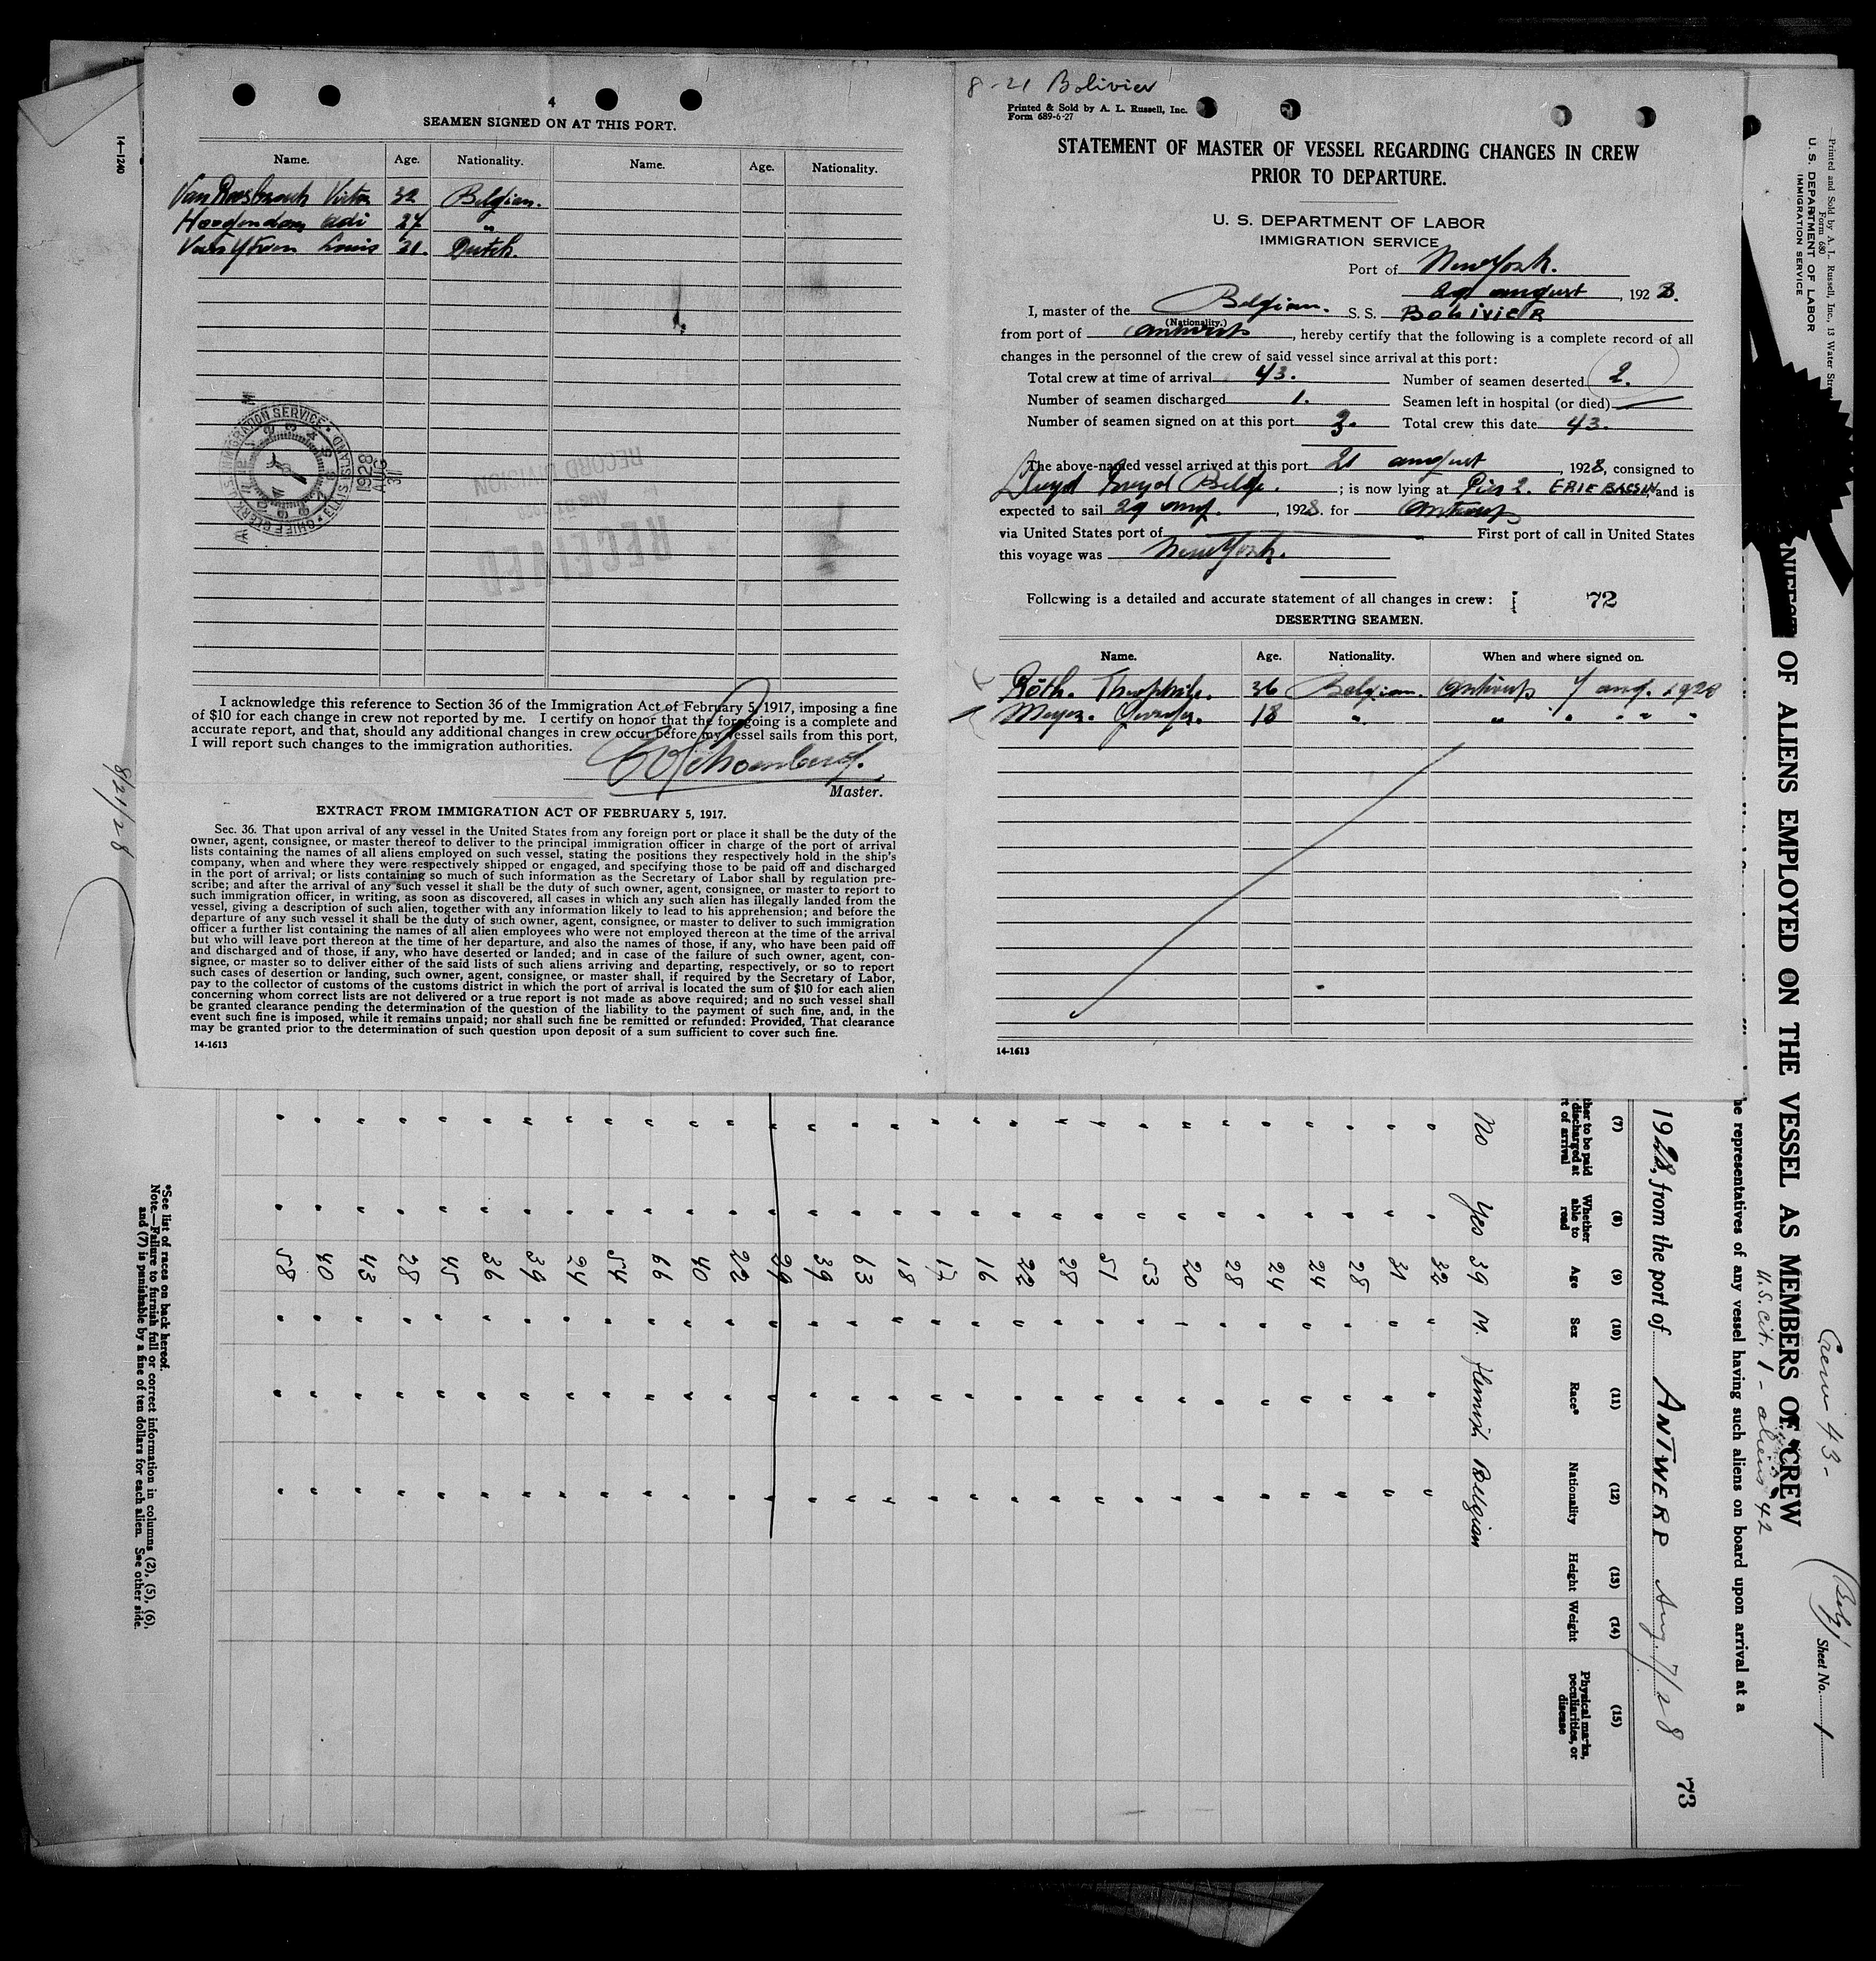 4
SEAMEN SIGNED ON AT THIS PORT.
Name. Age. Nationality. Name. Age. Nationality.
Victor 32 Belgian.
27 "
Louis 31. Dutch.
IMMIGRATION SERVICE
CHIEF CLERK U.S.
1928
AUG
31
RECORD DIVISION
RECEIVED
I acknowledge this reference to Section 36 of the Immigration Act of February 5, 1917, imposing a fine
of $10 for each change in crew not reported by me. I certify on honor that the foregoing is a complete and
accurate report, and that, should any additional changes in crew occur before my vessel sails from this port,
I will report such changes to the immigration authorities.
Master.
EXTRACT FROM IMMIGRATION ACT OF FEBRUARY 5, 1917.
Sec. 36. That upon arrival of any vessel in the United States from any foreign port or place it shall be the duty of the
owner, agent, consignee, or master thereof to deliver to the principal immigration officer in charge of the port of arrival
lists containing the names of all aliens employed on such vessel, stating the positions they respectively hold in the ship's
company, when and where they were respectively shipped or engaged, and specifying those to be paid off and discharged
in the port of arrival; or lists containing so much of such information as the Secretary of Labor shall by regulation pre-
scribe; and after the arrival of any such vessel it shall be the duty of such owner, agent, consignee, or master to report to
such immigration officer, in writing, as soon as discovered, all cases in which any such alien has illegally landed from the
vessel, giving a description of such alien, together with any information likely to lead to his apprehension; and before the
departure of any such vessel it shall be the duty of such owner, agent, consignee, or master to deliver to such immigration
officer a further list containing the names of all alien employees who were not employed thereon at the time of the arrival
but who will leave port thereon at the time of her departure, and also the names of those, if any, who have been paid off
and discharged and of those, if any, who have deserted or landed; and in case of the failure of such owner, agent, con-
signee, or master so to deliver either of the said lists of such aliens arriving and departing, respectively, or so to report
such cases of desertion or landing, such owner, agent, consignee, or master shall, if required by the Secretary of Labor,
pay to the collector of customs of the customs district in which the port of arrival is located the sum of $10 for each alien
concerning whom correct lists are not delivered or a true report is not made as above required; and no such vessel shall
be granted clearance pending the determination of the question of the liability to the payment of such fine, and, in the
event such fine is imposed, while it remains unpaid; nor shall such fine be remitted or refunded: Provided, That clearance
may be granted prior to the determination of such question upon deposit of a sum sufficient to cover such fine.
14-1613
8-21 Bolivier
Printed & Sold by A. L. Russell, Inc.
Form 689-6-27
STATEMENT OF MASTER OF VESSEL REGARDING CHANGES IN CREW
PRIOR TO DEPARTURE.
U. S. DEPARTMENT OF LABOR
IMMIGRATION SERVICE
Port of New York.
29 august, 1928.
I, master of the Belgian. S. S. BOLIVIER
(Nationality.)
from port of Antwerp, hereby certify that the following is a complete record of all
changes in the personnel of the crew of said vessel since arrival at this port:
Total crew at time of arrival 43. Number of seamen deserted 2.
Number of seamen discharged 1. Seamen left in hospital (or died)
Number of seamen signed on at this port 3. Total crew this date 43.
The above-named vessel arrived at this port 21 august, 1928, consigned to
Lloyd Royal Belge.; is now lying at Pier 2. ERIE BASSIN, and is
expected to sail 29 aug., 1928. for Antwerp
via United States port of First port of call in United States
this voyage was New York.
Following is a detailed and accurate statement of all changes in crew: 72
DESERTING SEAMEN.
Name. Age. Nationality. When and where signed on.
Röth. Theophile. 36 Belgian. Antwerp 7 aug. 1928
Meyer. 18 " " " " "
14-1613
14-1240
8/21/28
Printed and Sold by A. L. Russell, Inc., 13 Water
Form 680
U. S. DEPARTMENT OF LABOR
IMMIGRATION SERVICE
Crew 43 -
(Belg) Sheet No. 1
OF ALIENS EMPLOYED ON THE VESSEL AS MEMBERS OF CREW
U.S. Cit. 1 - aliens 42
he representatives of any vessel having such aliens on board upon arrival at a
1928, from the port of ANTWERP Aug 7/28
73
(7) (8) (9) (10) (11) (12) (13) (14) (15)
ther to be paid discharged at rt of arrival Whether able to read Age Sex Race* Nationality Height Weight Physical marks, peculiarities, or disease
No Yes 39 M. Flemish Belgian
" " 32 " " "
" " 31 " " "
" " 25 " " "
" " 24 " " "
" " 24 " " "
" " 28 " " "
" " 20 " " "
" " 53 " " "
" " 51 " " "
" " 28 " " "
" " 22 " " "
" " 16 " " "
" " 17 " " "
" " 18 " " "
" " 63 " " "
" " 39 " " "
" " 39 " " "
" " 22 " " "
" " 40 " " "
" " 66 " " "
" " 54 " " "
" " 24 " " "
" " 39 " " "
" " 36 " " "
" " 45 " " "
" " 28 " " "
" " 43 " " "
" " 40 " " "
" " 58 " " "
*See list of races on back hereof.
Note.—Failure to furnish full or correct information in columns (2), (5), (6),
and (7) is punishable by a fine of ten dollars for each alien. See other side.